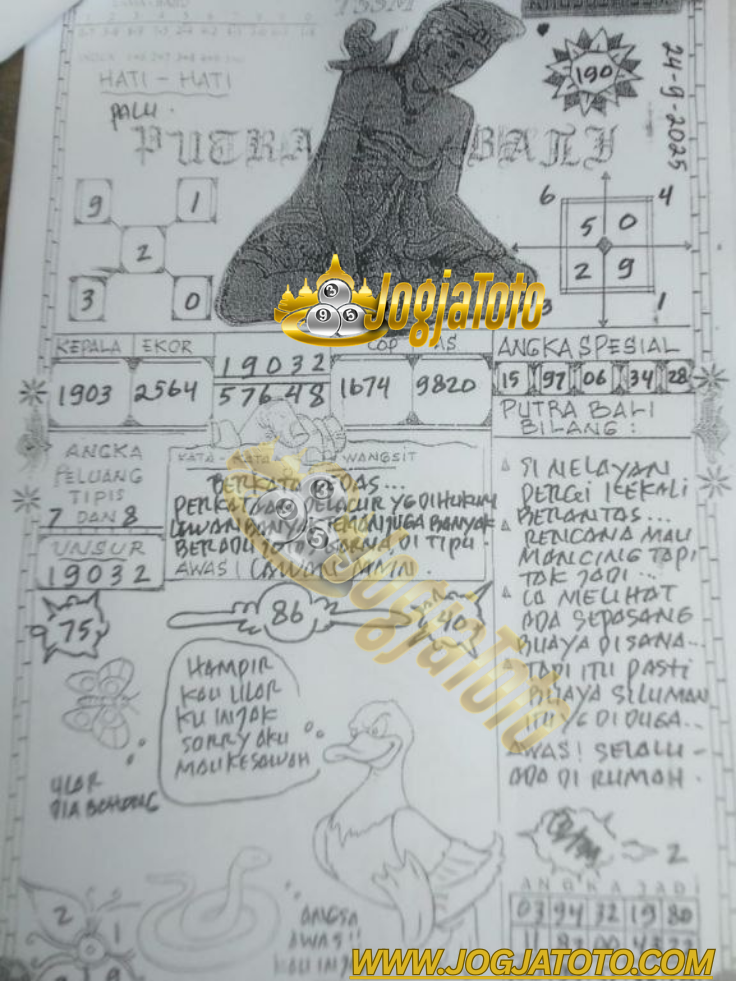 HATI - HATI
PALU.
PUTRA BALI
190
24-9-2025
9 1
2
3 0
6 4
5 0
2 9
3 1
JogjaToto
KEPALA EKOR
1903 2564
19032
57648
COP AS
1674 9820
ANGKA SPESIAL
15 97 06 34 28
PUTRA BALI
BILANG :
ANGKA
PELUANG
TIPIS
7 DAN 8
UNSUR
19032
KATA - KATA WANGSIT
BERKATA PEDAS...
PERKATAAN PELACUR YG DIHUKUM
LAWAN BANYAK TEMAN JUGA BANYAK
BERADU WARNA DI TIPU.
AWAS! LAWAN MAIN.
SI NELAYAN
PERGI KEKALI
BERANTAS...
RENCANA MAU
MANCING TAPI
TAK JADI...
IA MELIHAT
ADA SEPASANG
BUAYA DISANA...
TAPI ITU PASTI
BUAYA SILUMAN
ITU YG DI DUGA...
AWAS! SELALU -
ADA DI RUMAH.
75
86
40
JogjaToto
HAMPIR
KAU ULAR
KU INJAK
SORRY AKU
MAU KESAWAH
ULAR
DIA BOHONG
2
ANGKA JADI
03 94 32 19 80
2 1
8
ANGSA
AWAS!!
KAU INJAK
WWW.JOGJATOTO.COM